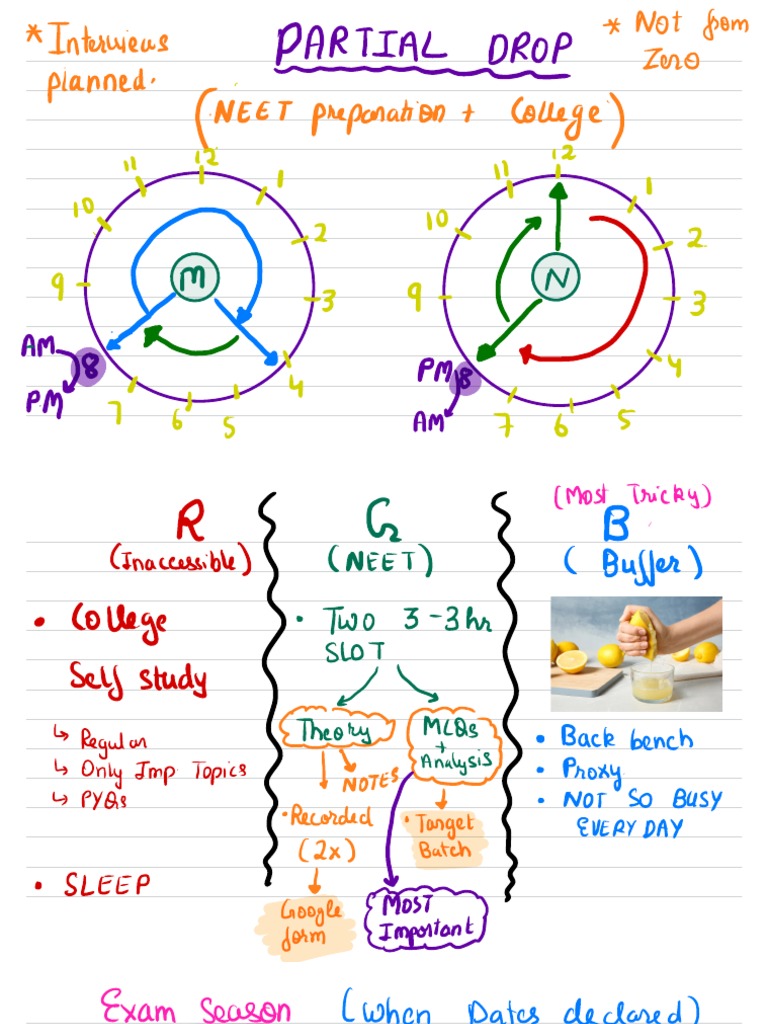 * Interviews
planned.
PARTIAL DROP
* Not from
Zero
(NEET preparation + College)
12
11
1
10
2
9
M
3
AM
8
PM
7
6
5
4
12
11
1
10
2
9
N
3
PM
8
AM
7
6
5
4
R
(Inaccessible)
• College
Self study
↳ Regular
↳ Only Imp Topics
↳ PYQs
• SLEEP
G
(NEET)
• Two 3-3hr
SLOT
Theory
NOTES
• Recorded
(2x)
Google
form
MCQs
+
Analysis
• Target
Batch
MOST
Important
(Most Tricky)
B
(Buffer)
• Back bench
• Proxy
• NOT SO BUSY
EVERYDAY
Exam Season (When Dates declared)